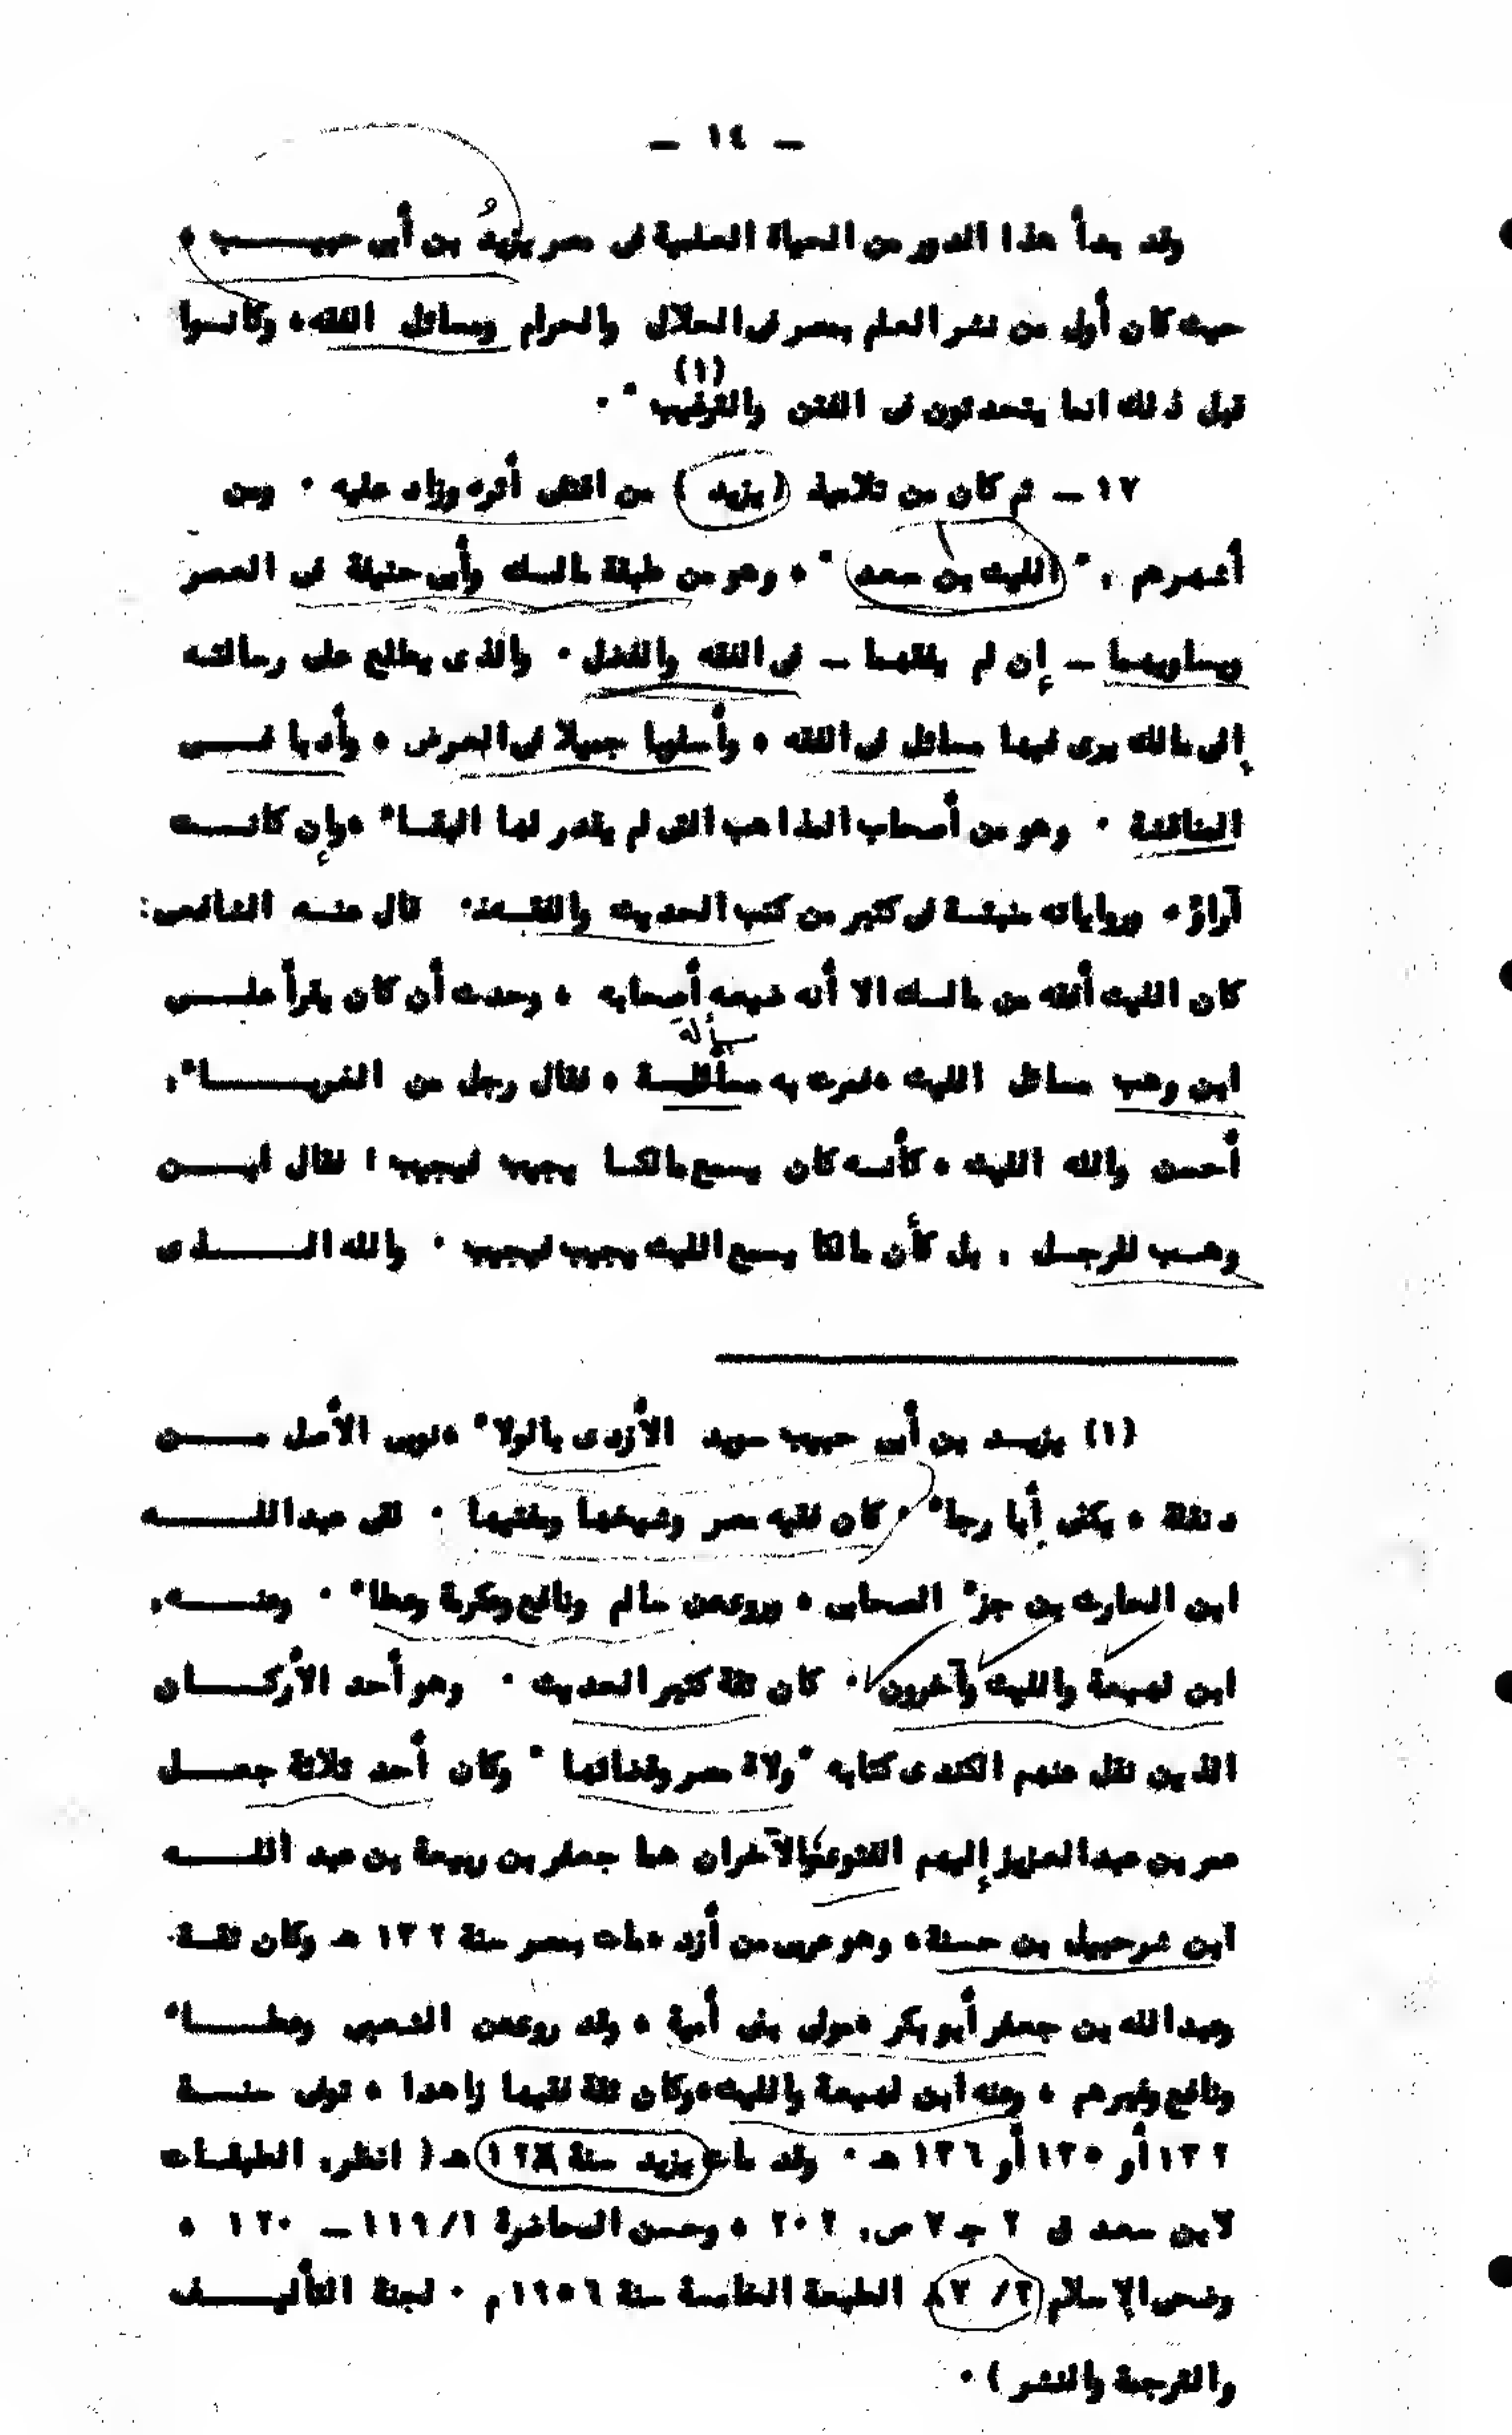 — ١٤ —
وقد بدأ هذا الدور من الحياة العلمية فى مصر يزيدُ بن أبى حبيـــــب ،
حيث كان أول من نشر العلم بمصر فى الحلال والحرام ومسائل الفقه، وكانـوا
قبل ذلك انما يتحدثون فى الفتن والترغيب " ٠ (١)
١٢ — ثم كان من تلاميذ ( يزيد ) من اقتفى أثره وزاد عليه ٠ ومن
أشهرهم : " الليث بن سعد " ، وهو من طبقة مالـك وأبى حنيفة فى العصر
ويساويهما — إن لم يفقهما — فى الفقه والفضل ٠ والذى يطلع على رسالتـه
إلى مالك يرى فيها مسائل فى الفقه ، وأسلوبا جميلا فى العرض ، وأدبا فـــى
المناقشة ٠ وهو من أصحاب المذاهب التى لم يقدر لها البقـاء ، وإن كانــت
آراؤه ورواياته منبثـة فى كثير من كتب الحديث والفقـه ٠ قال عنـه الشافعى:
كان الليث أفقه من مالـك الا أنه ضيعه أصحابه ، وحدث أن كان يقرأ علــى
ابن وهب مسائل الليث ، فمرت به مسألــة ، فقال رجل من الغربـــــاء:
مسألة
أحسن والله الليث ، كأنـه كان يسمع مالكـا يجيب فيجيب ! فقال ابــــن
وهـب للرجـل : بل كأن مالكا يسمع الليث يجيب فيجيب ٠ والله الـــــذى
(١) يزيـد بن أبى حبيب سويد الأزدى بالولاء ، نوبى الأصل مــــن
دنقلة ، يكنى أبا رجاء ٠ كان فقيه مصر وشيخها ومفتيها ٠ لقى عبدالـلــــه
ابن الحارث بن جزء الصحابى ، وروى عن سالم ونافع وعكرمة وعطاء ٠ وعنـــه:
ابن لهيعة والليث وآخرون ٠ كان ثقة كثير الحديث ٠ وهو أحد الأركـــان
الذين نقل عنهم الكندى كتابه "ولاة مصر وقضاتها " وكان أحد ثلاثة جعـــل
عمر بن عبدالعزيز إليهم الفتوى، والآخران هما جعفر بن ربيعة بن عبد اللــه
ابن شرحبيل بن حسنة، وهو عربى من أزد ، مات بمصر سنة ١٣٢ هـ وكان ثقـة
وعبدالله بن جعفر أبو بكر ، مولى بنى أمية ، وقد روى عن الشعبى وعطـــاء
ونافع وغيرهم ، وعنه ابن لهيعة والليث، وكان ثقة فقيها زاهدا ، توفى سنــة
١٣٢ أو ١٣٥ أو ١٣٦ هـ ٠ وقد مات يزيد سنة ١٢٨ هـ ( انظر: الطبقـات
لابن سعد ق ٢ جـ ٧ ص. ٢٠٢ ، وحسن المحاضرة ١١٩/١ — ١٢٠ ،
وضحى الإسلام ٢/ ٨٧ الطبعة الخامسة سنة ١٩٥٦ م ٠ لجنة التأليــف
والترجمة والنشر ) ٠